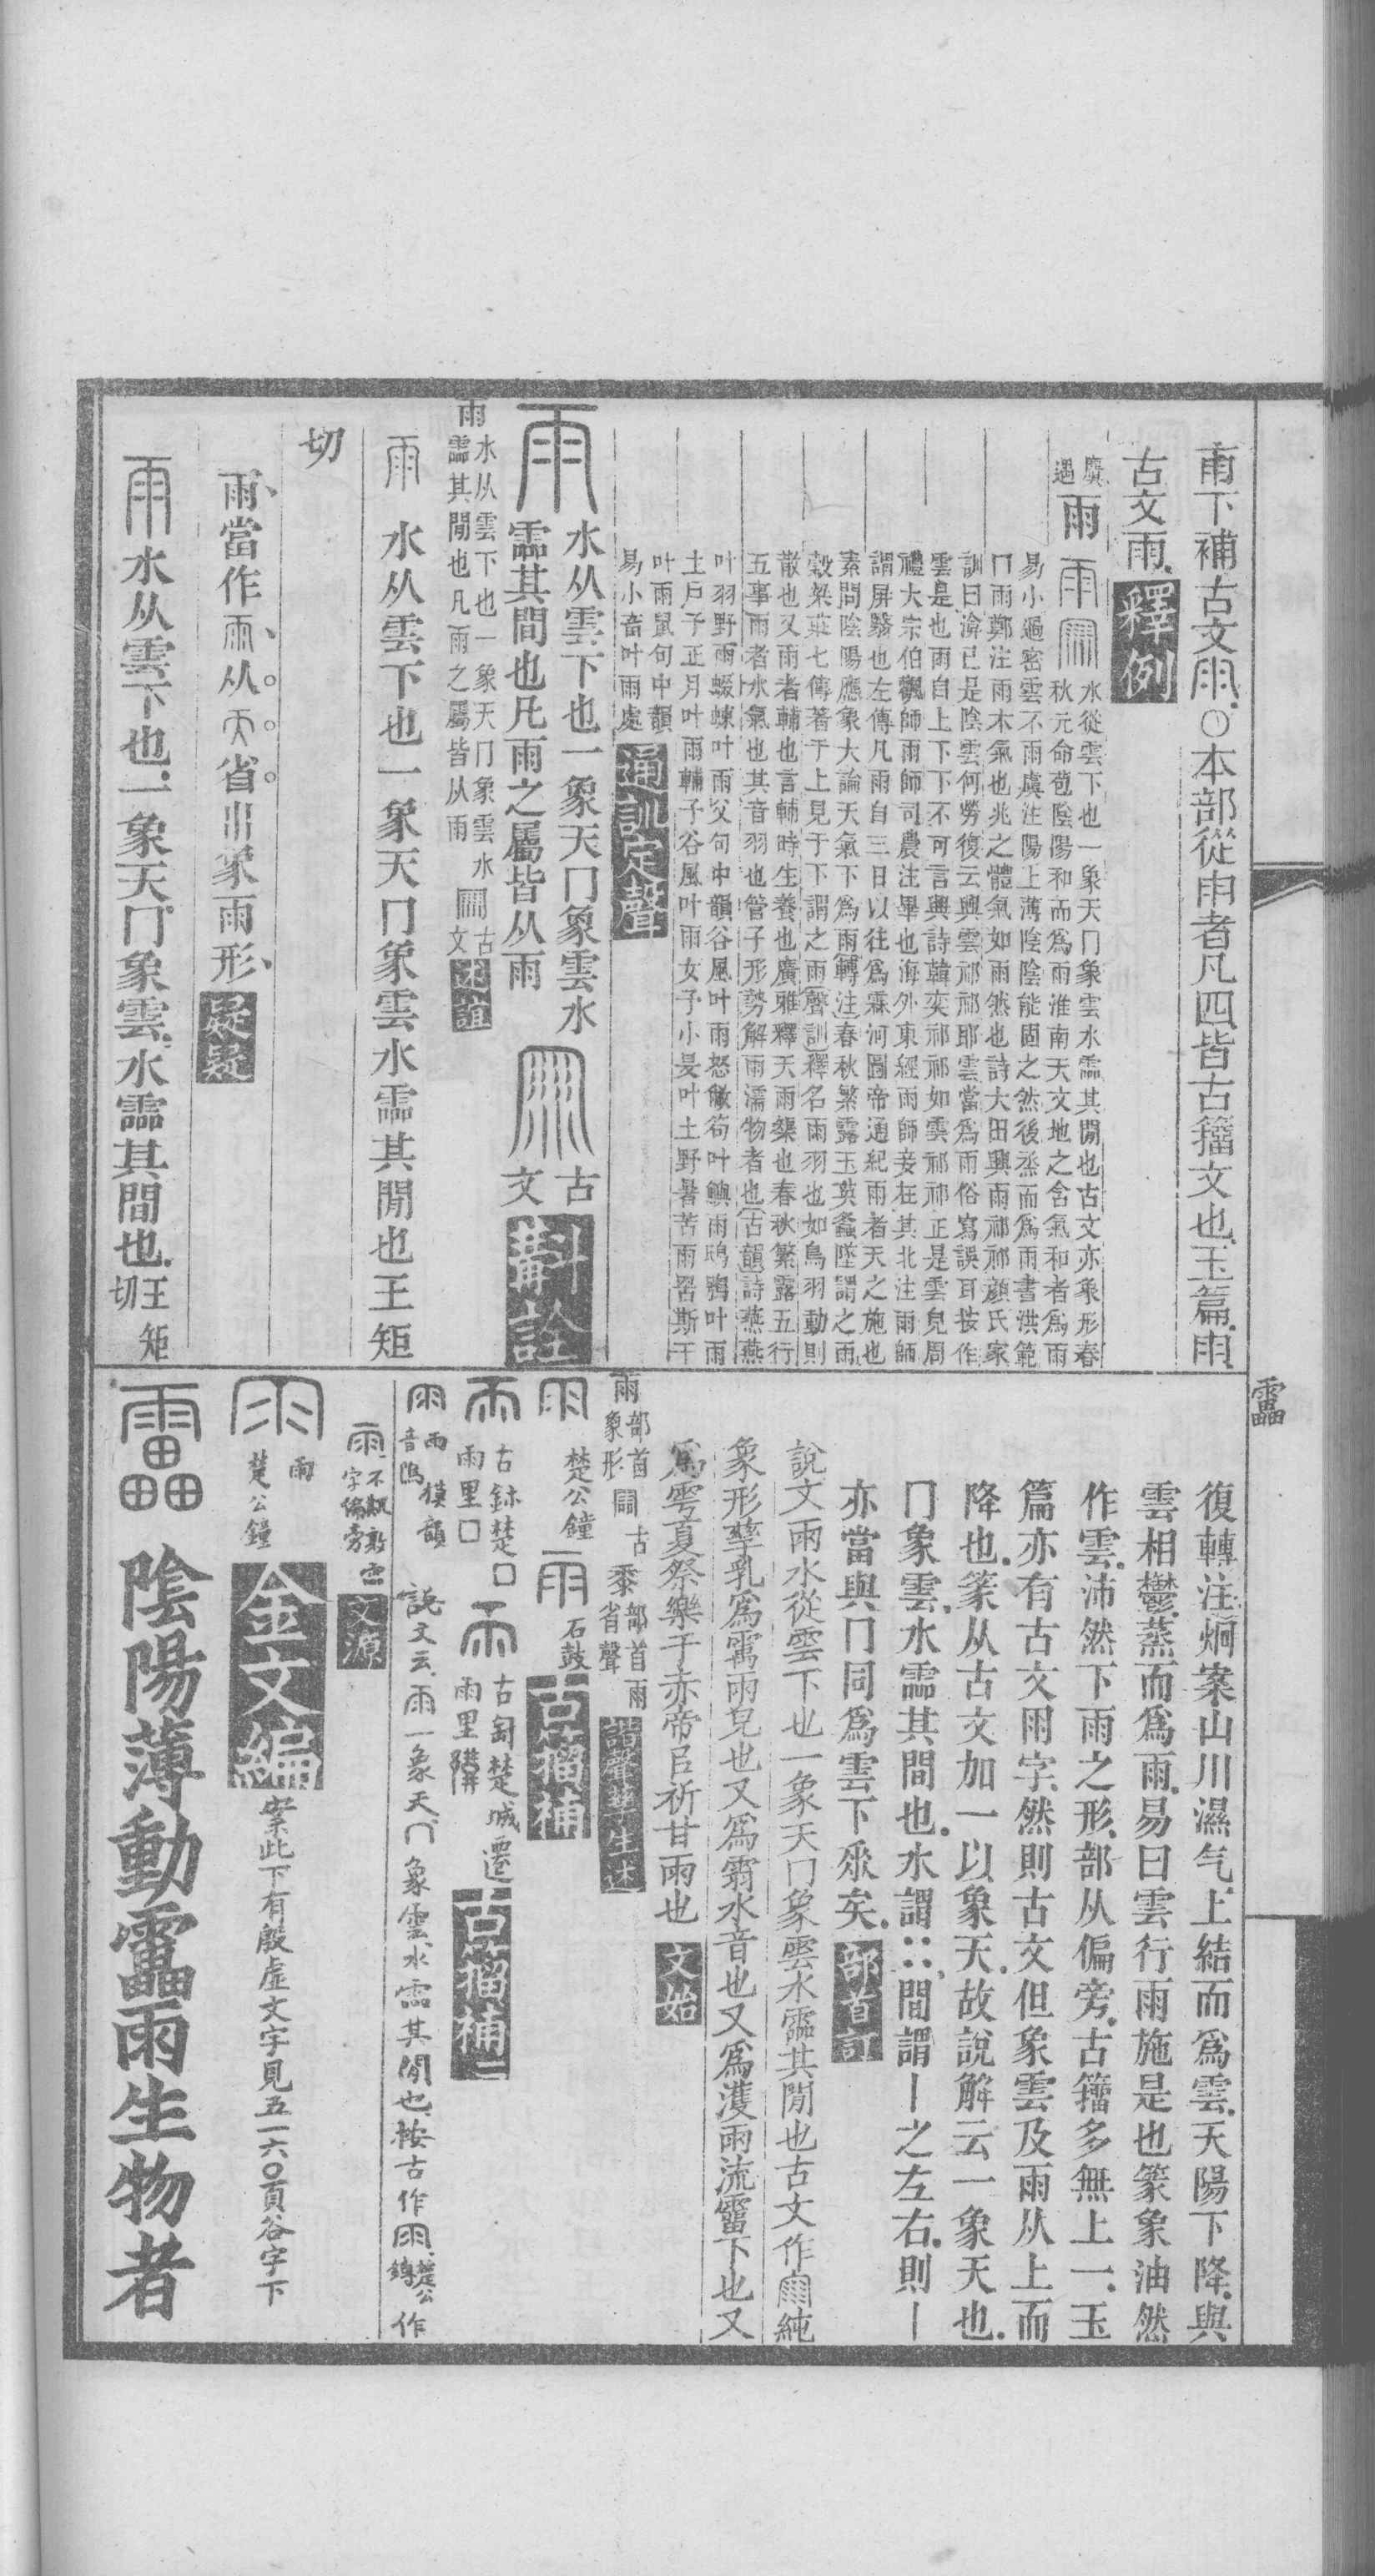 雨下補古文𠕒○本部從𠕒者凡四皆古籀文也玉篇𠕒
古文雨
釋例
廣
遇
雨
水從雲下也一象天冂象雲水霝其閒也古文亦象形春
秋元命苞陰陽和而爲雨淮南天文地之含氣和者爲雨
易小過密雲不雨虞注陽上薄陰陰能固之然後烝而爲雨書洪範
冂雨鄭注雨木氣也兆之體氣如雨然也詩大田興雨祁祁顏氏家
訓曰渰已是陰雲何勞復云興雲祁祁耶雲當爲雨俗寫誤耳按作
雲是也雨自上下下不可言興詩韓奕祁祁如雲祁祁正是雲皃周
禮大宗伯觀師雨師司農注畢也海外東經雨師妾在其北注雨師
謂屏翳也左傳凡雨自三日以往爲霖河圖帝通紀雨者天之施也
素問陰陽應象大論天氣下爲雨轉注春秋繁露玉英螽墜謂之雨
穀梁莊七傳著于上見于下謂之雨聲訓釋名雨羽也如鳥羽動則
散也又雨者輔也言輔時生養也廣雅釋天雨榘也春秋繁露五行
五事雨者水氣也其音羽也管子形勢解雨濡物者也古韻詩燕燕
叶羽野雨蝃蝀叶雨父句中韻谷風叶雨怒敝笱叶鱮雨鴟鴞叶雨
土戶予正月叶雨輔予谷風叶雨女予小旻叶土野暑苦雨罟斯干
叶雨鼠句中韻
易小畜叶雨處
通訓定聲
水从雲下也一象天冂象雲水
霝其間也凡雨之屬皆从雨
古
文
斠詮
雨
水从雲下也一象天冂象雲水
霝其閒也凡雨之屬皆从雨
古
文
述誼
雨
水从雲下也一象天冂象雲水霝其閒也王矩
切
雨當作
从天省
象雨形
疑疑
雨
水从雲下也一象天冂象雲水霝其間也
王矩
切
靁
復轉注炯案山川濕气上結而爲雲天陽下降與
雲相鬱蒸而爲雨易曰雲行雨施是也篆象油然
作雲沛然下雨之形部从偏旁古籀多無上一玉
篇亦有古文𠕒字然則古文但象雲及雨从上而
降也篆从古文加一以象天故說解云一象天也
冂象雲水霝其間也水謂閒謂丨之左右則丨
亦當與冂同爲雲下𠂢矣
部首訂
說文雨水從雲下也一象天冂象雲水霝其閒也古文作純
象形孳乳爲䨞雨皃也又爲䨒水音也又爲濩雨流霤下也又
爲雩夏祭樂于赤帝㠯祈甘雨也
文始
雨
部首
象形
古
黍
部首雨
省聲
諧聲孳生述
楚公鐘
石鼓
古籀補
古鉥楚□
雨里□
古匋楚城遷
雨里
古籀補
雨
音隖
模韻
說文云雨一象天冂象雲水霝其閒也按古作
楚公
鎛
作
不
字偏旁
文源
雨
楚公鐘
金文編
案此下有殷虛文字見五一六〇頁谷字下
陰陽薄動靁雨生物者